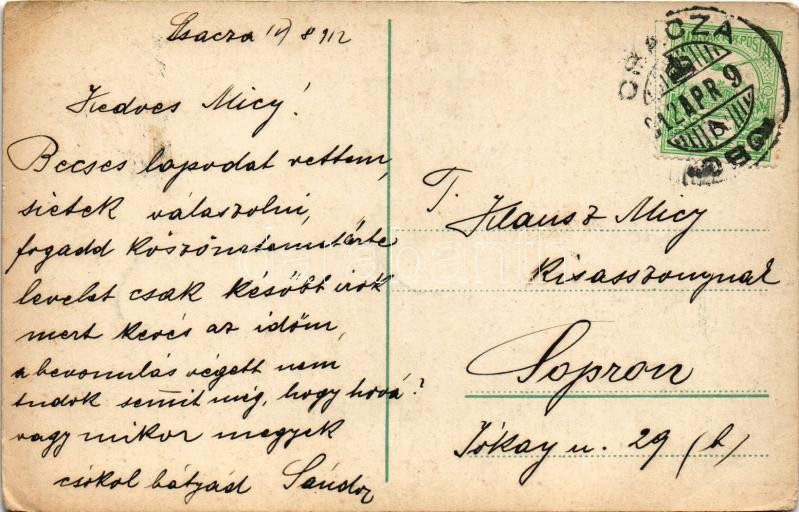 Csacza IV/8 912
Kedves Micy!
Becses lapodat vettem,
sietek válaszolni,
fogadd köszönetemet érte
levelet csak később irok
mert kevés az időm,
a bevonulás végett nem
tudok semmit még, hogy hová?
vagy mikor megyek
csókol bátyád Sándor
T. Klausz Micy
kisasszonynak
Sopron
Jókay u. 29 (b)
912 APR 9
darabanth